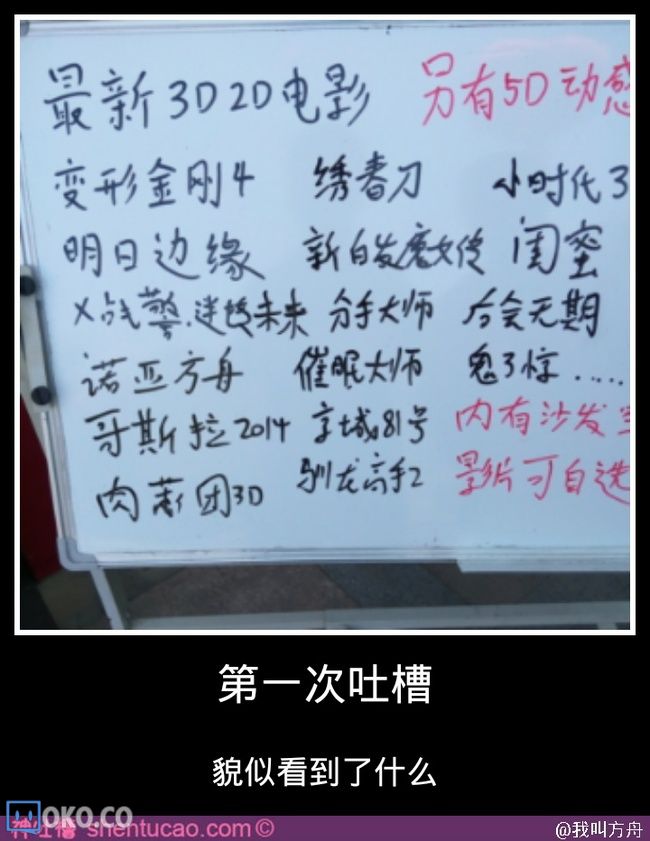 最新3D2D电影 另有5D动感
变形金刚4 绣春刀 小时代3
明日边缘 新白发魔女传 闺蜜
X战警.逆转未来 分手大师 后会无期
诺亚方舟 催眠大师 鬼3惊.....
哥斯拉2014 京城81号 内有沙发
肉蒲团3D 驯龙高手2 影片可自选
第一次吐槽
貌似看到了什么
OKO.CO
神吐槽 shentucao.com©
@我叫方舟